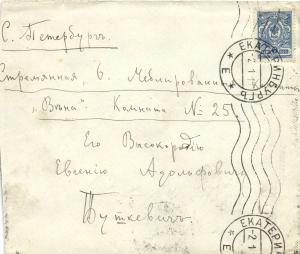 С. Петербургъ.
Стремянная, 6. Меблированныя
"Вѣна" Комната № 25
Его Высокородію
Евгенію Адольфовичу
Буткевичъ.
ЕКАТЕРИНБУРГЪ
ЕКАТЕРИ